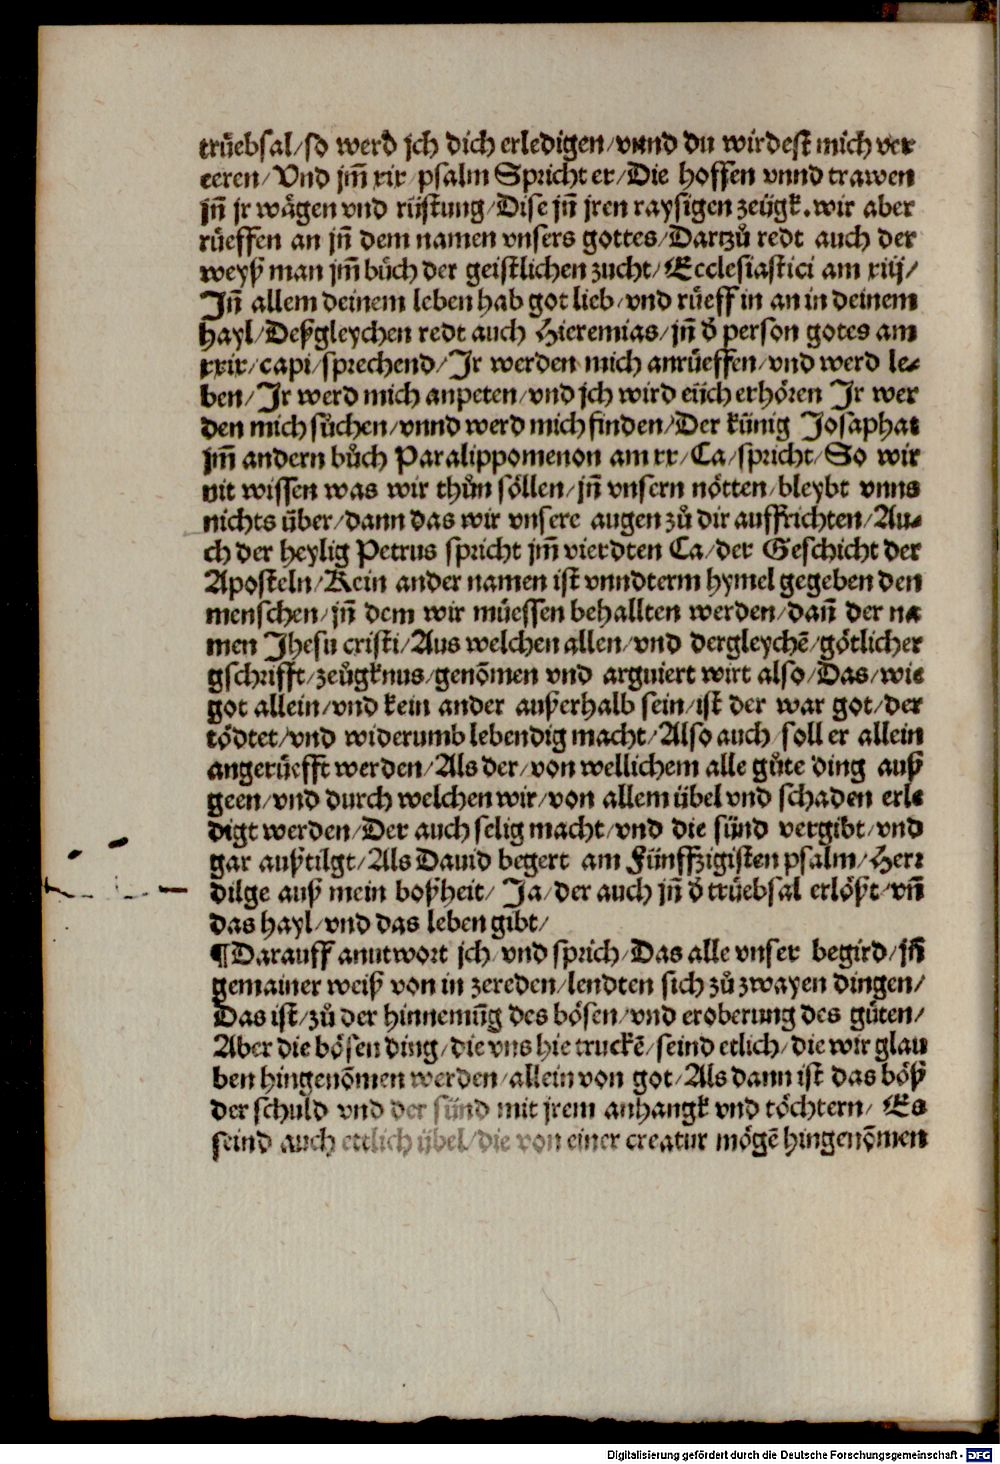 trüebsal/so werd jch dich erledigen/vnnd du wirdest mich ver
eeren/Vnd jm̄ xix/psalm Spricht er/Die hoffen vnnd trawen
jn̄ jr wägen vnd rüstung/Dise jn̄ jren raysigen zeügk.wir aber
rüeffen an jn̄ dem namen vnsers gottes/Dartzů redt auch der
weyß man jm̄ bůch der geistlichen zucht/Ecclesiastici am xiij/
Jn̄ allem deinem leben hab got lieb/vnd rüeff in an in deinem
hayl/Deßgleychen redt auch Hieremias/jn̄ d̕ person gotes am
xxix/capi/sprechend/Jr werden mich anrüeffen/vnd werd le⸗
ben/Jr werd mich anpeten/vnd jch wird eüch erhören Jr wer
den mich sůchen/vnnd werd mich finden/Der künig Josaphat
jm̄ andern bůch Paralippomenon am xx/Ca/spricht/So wir
nit wissen was wir thůn söllen/jn̄ vnsern nötten/bleybt vnns
nichts über/dann das wir vnsere augen zů dir auffrichten/Au⸗
ch der heylig Petrus spricht jm̄ vierdten Ca/der Geschicht der
Aposteln/Kein ander namen ist vnndterm hymel gegeben den
menschen/jn̄ dem wir müessen behallten werden/dan̄ der na
men Jhesu cristi/Aus welchen allen/vnd dergleychē/götlicher
gschrifft/zeůgknus/genōmen vnd arguiert wirt also/Das/wie
got allein/vnd kein ander außerhalb sein/ist der war got/der
tödtet/vnd widerumb lebendig macht/Also auch/soll er allein
angerüefft werden/Als der/von wellichem alle gůte ding auß
geen/vnd durch welchen wir/von allem übel vnd schaden erle
digt werden/Der auch selig macht/vnd die sünd vergibt/vnd
gar außtilgt/Als Dauid begert am Fünffzigisten psalm/Herr
dilge auß mein boßheit/Ja/der auch jn̄ d̕ trüebsal erlößt/vn̄
das hayl/vnd das leben gibt/
¶Darauff anntwort jch/vnd sprich/Das alle vnser begird/jn̄
gemainer weiß von in zereden/lendten sich zů zwayen dingen/
Das ist/zů der hinnemūg des bösen/vnd eroberung des gůten/
Aber die bösen ding/die vns hie truckē/seind etlich/die wir glau
ben hingenōmen werden/allein von got/Als dann ist das böß
der schuld vnd der sünd mit jrem anhangk vnd töchtern/Es
seind auch ettlich übel/die von einer creatur mögē hingenōmen
Digitalisierung gefördert durch die Deutsche Forschungsgemeinschaft - DFG